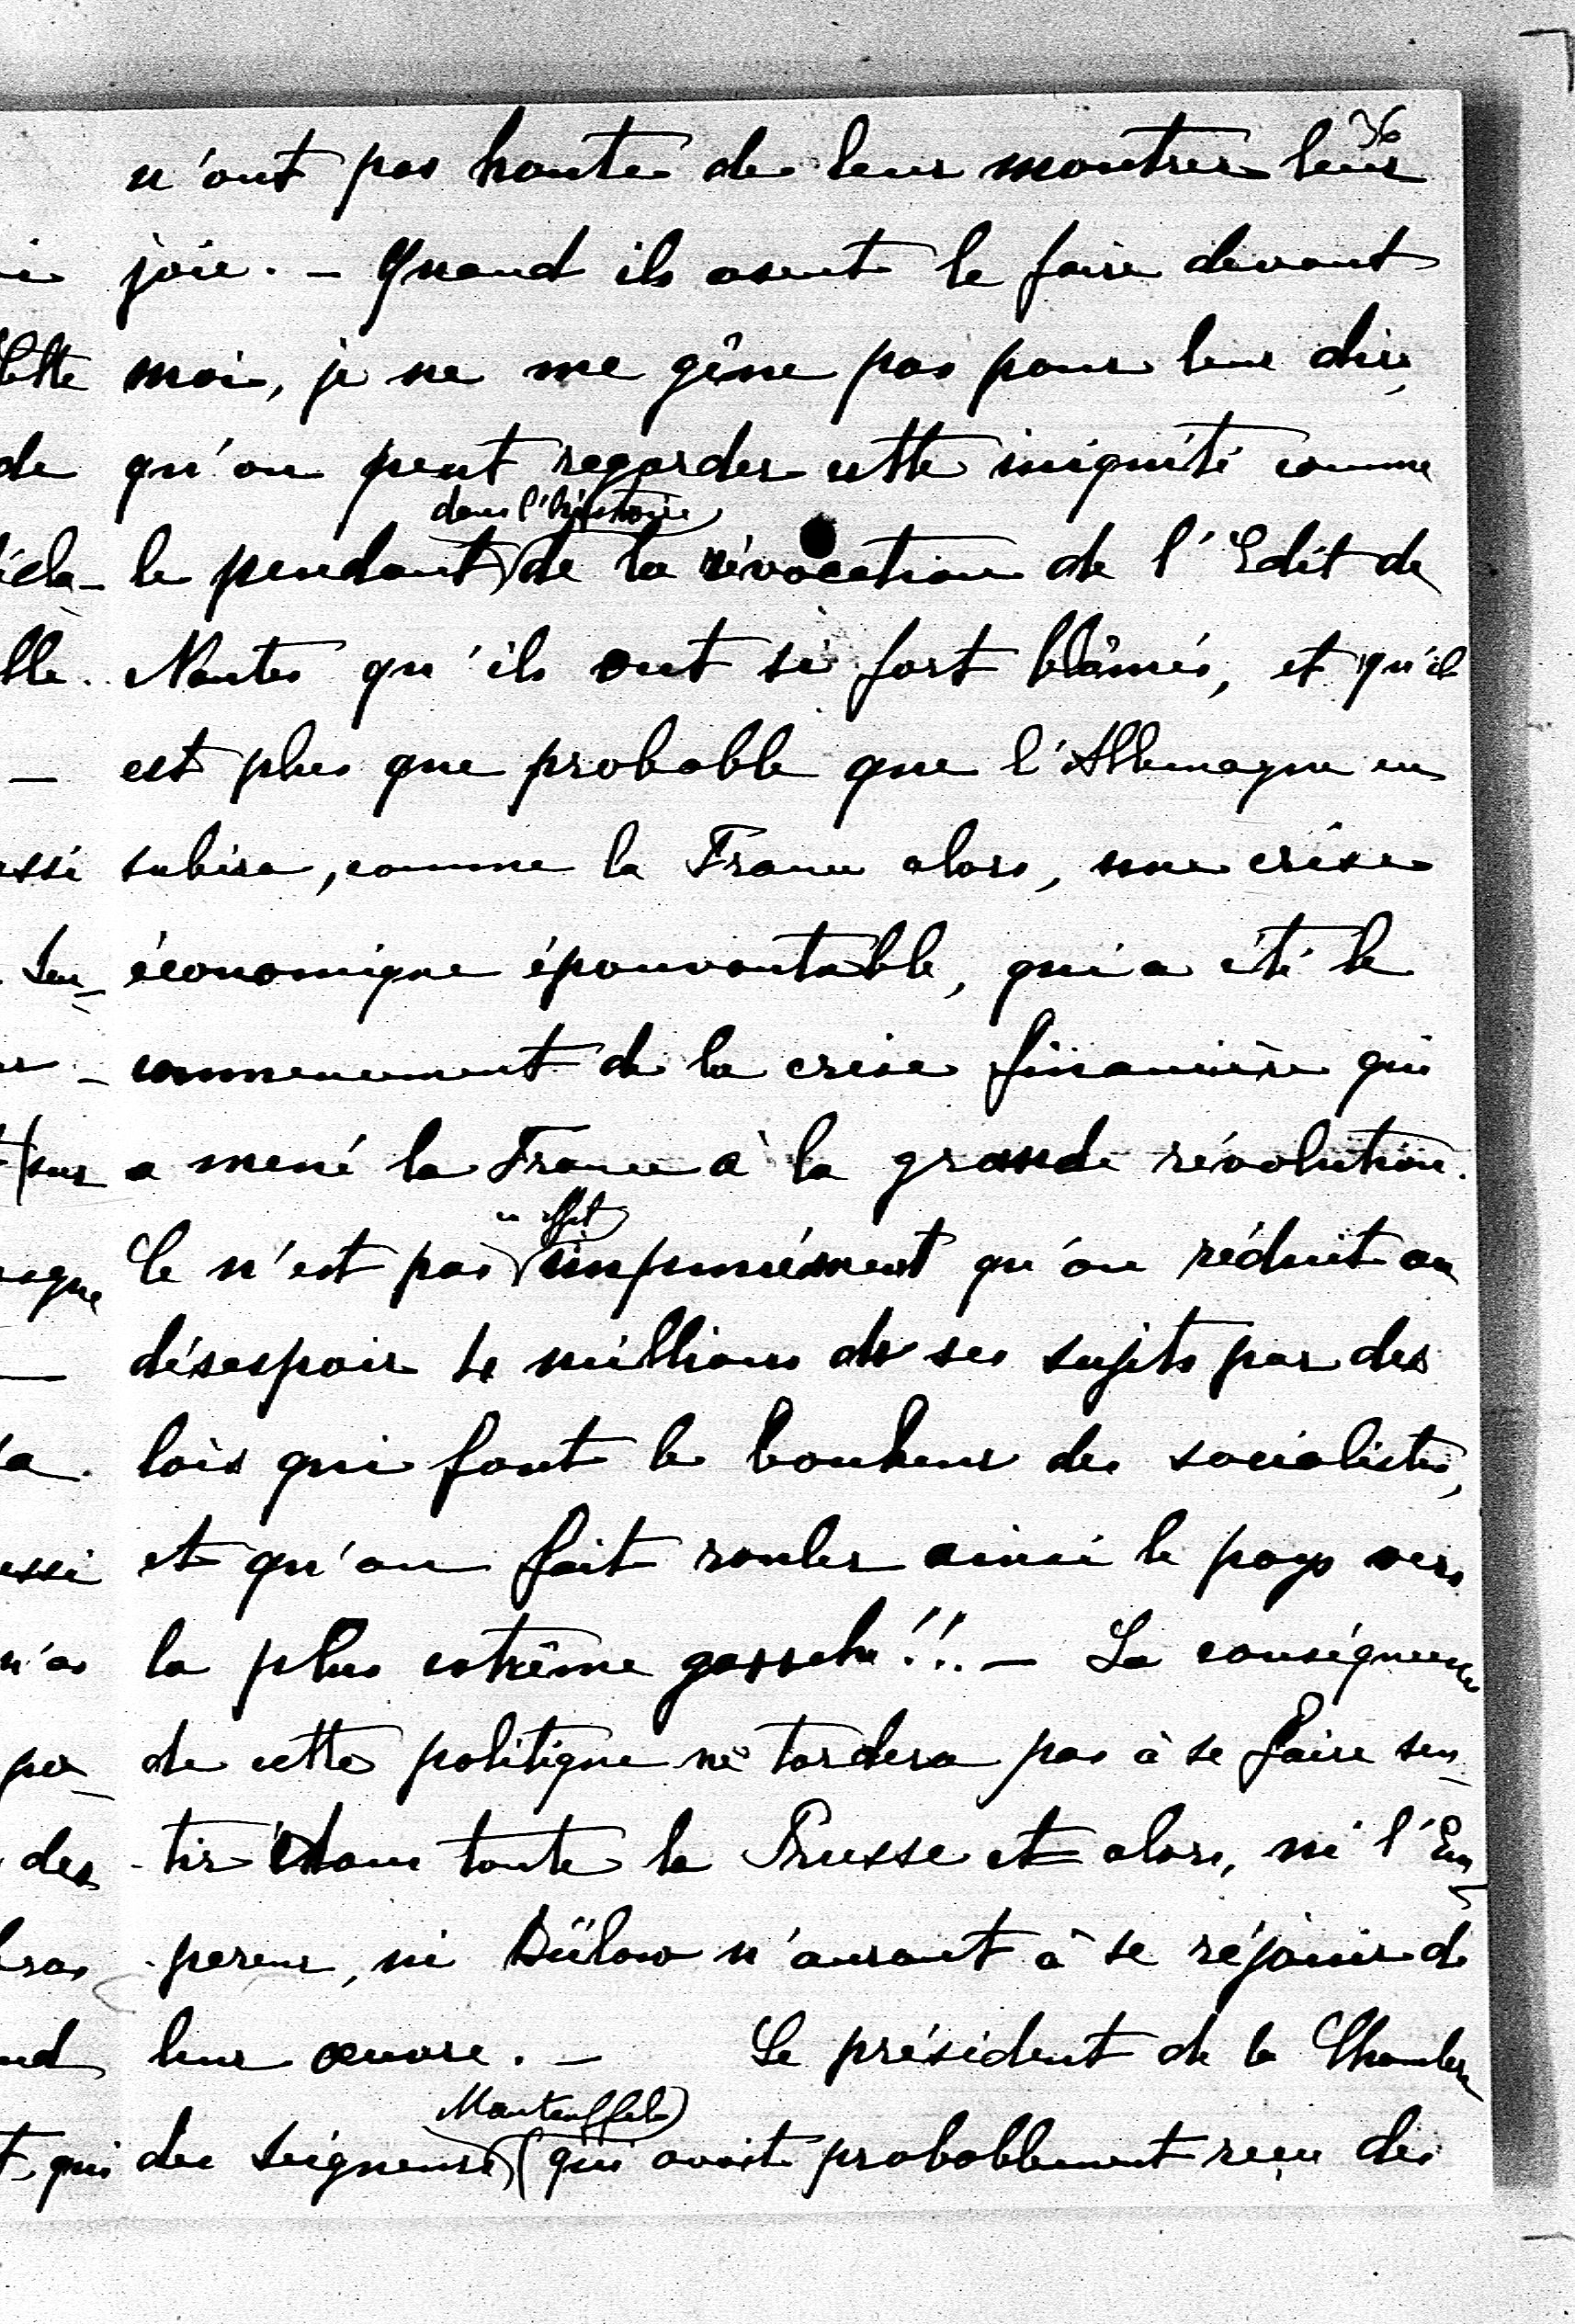 36
n'ont pas honte de leur montrer leur
joie. – Quand ils osent le faire devant
moi, je ne me gêne pas pour leur dire,
qu'on peut regarder cette iniquité comme
dans l'histoire
le pendant de la révocation de l'Edit de
Nantes qu'ils ont si fort blâmés, et qu'il
est plus que probable que l'Allemagne en
subira, comme la France alors, une crise
économique épouvantable, qui a été le
commencement de la crise financière qui
a mené la France à la grande révolution.
en effet
Ce n'est pas impunément qu'on réduit au
désespoir 4 millions de ses sujets par des
lois qui font le bonheur des socialistes,
et qu'on fait rouler ainsi le pays vers
la plus extrême gauche!!. – La conséquence
de cette politique ne tardera pas à se faire sen-
-tir dans toute la Prusse et alors, ni l'Em-
-pereur, ni Bülow n'auront à se réjouir de
leur œuvre. – Le président de la Chambre
Manteuffel
des Seigneurs (qui avait probablement reçu des